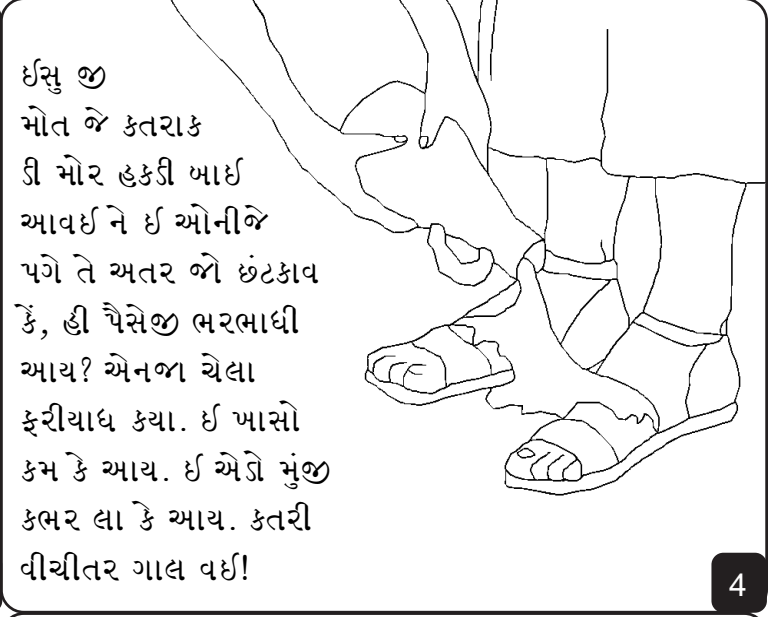 ઈસુ જી
મોત જે કતરાક
ડી મોર હકડી બાઈ
આવઈ ને ઈ ઓનીજે
પગે તે અતર જો છંટકાવ
કેં, હી પૈસેજી ભરભાધી
આય? એનજા ચેલા
ફરીયાધ કયા. ઈ ખાસો
કમ કે આય. ઈ એડો મુંજી
કભર લા કે આય. કતરી
વીચીતર ગાલ વઈ!
4